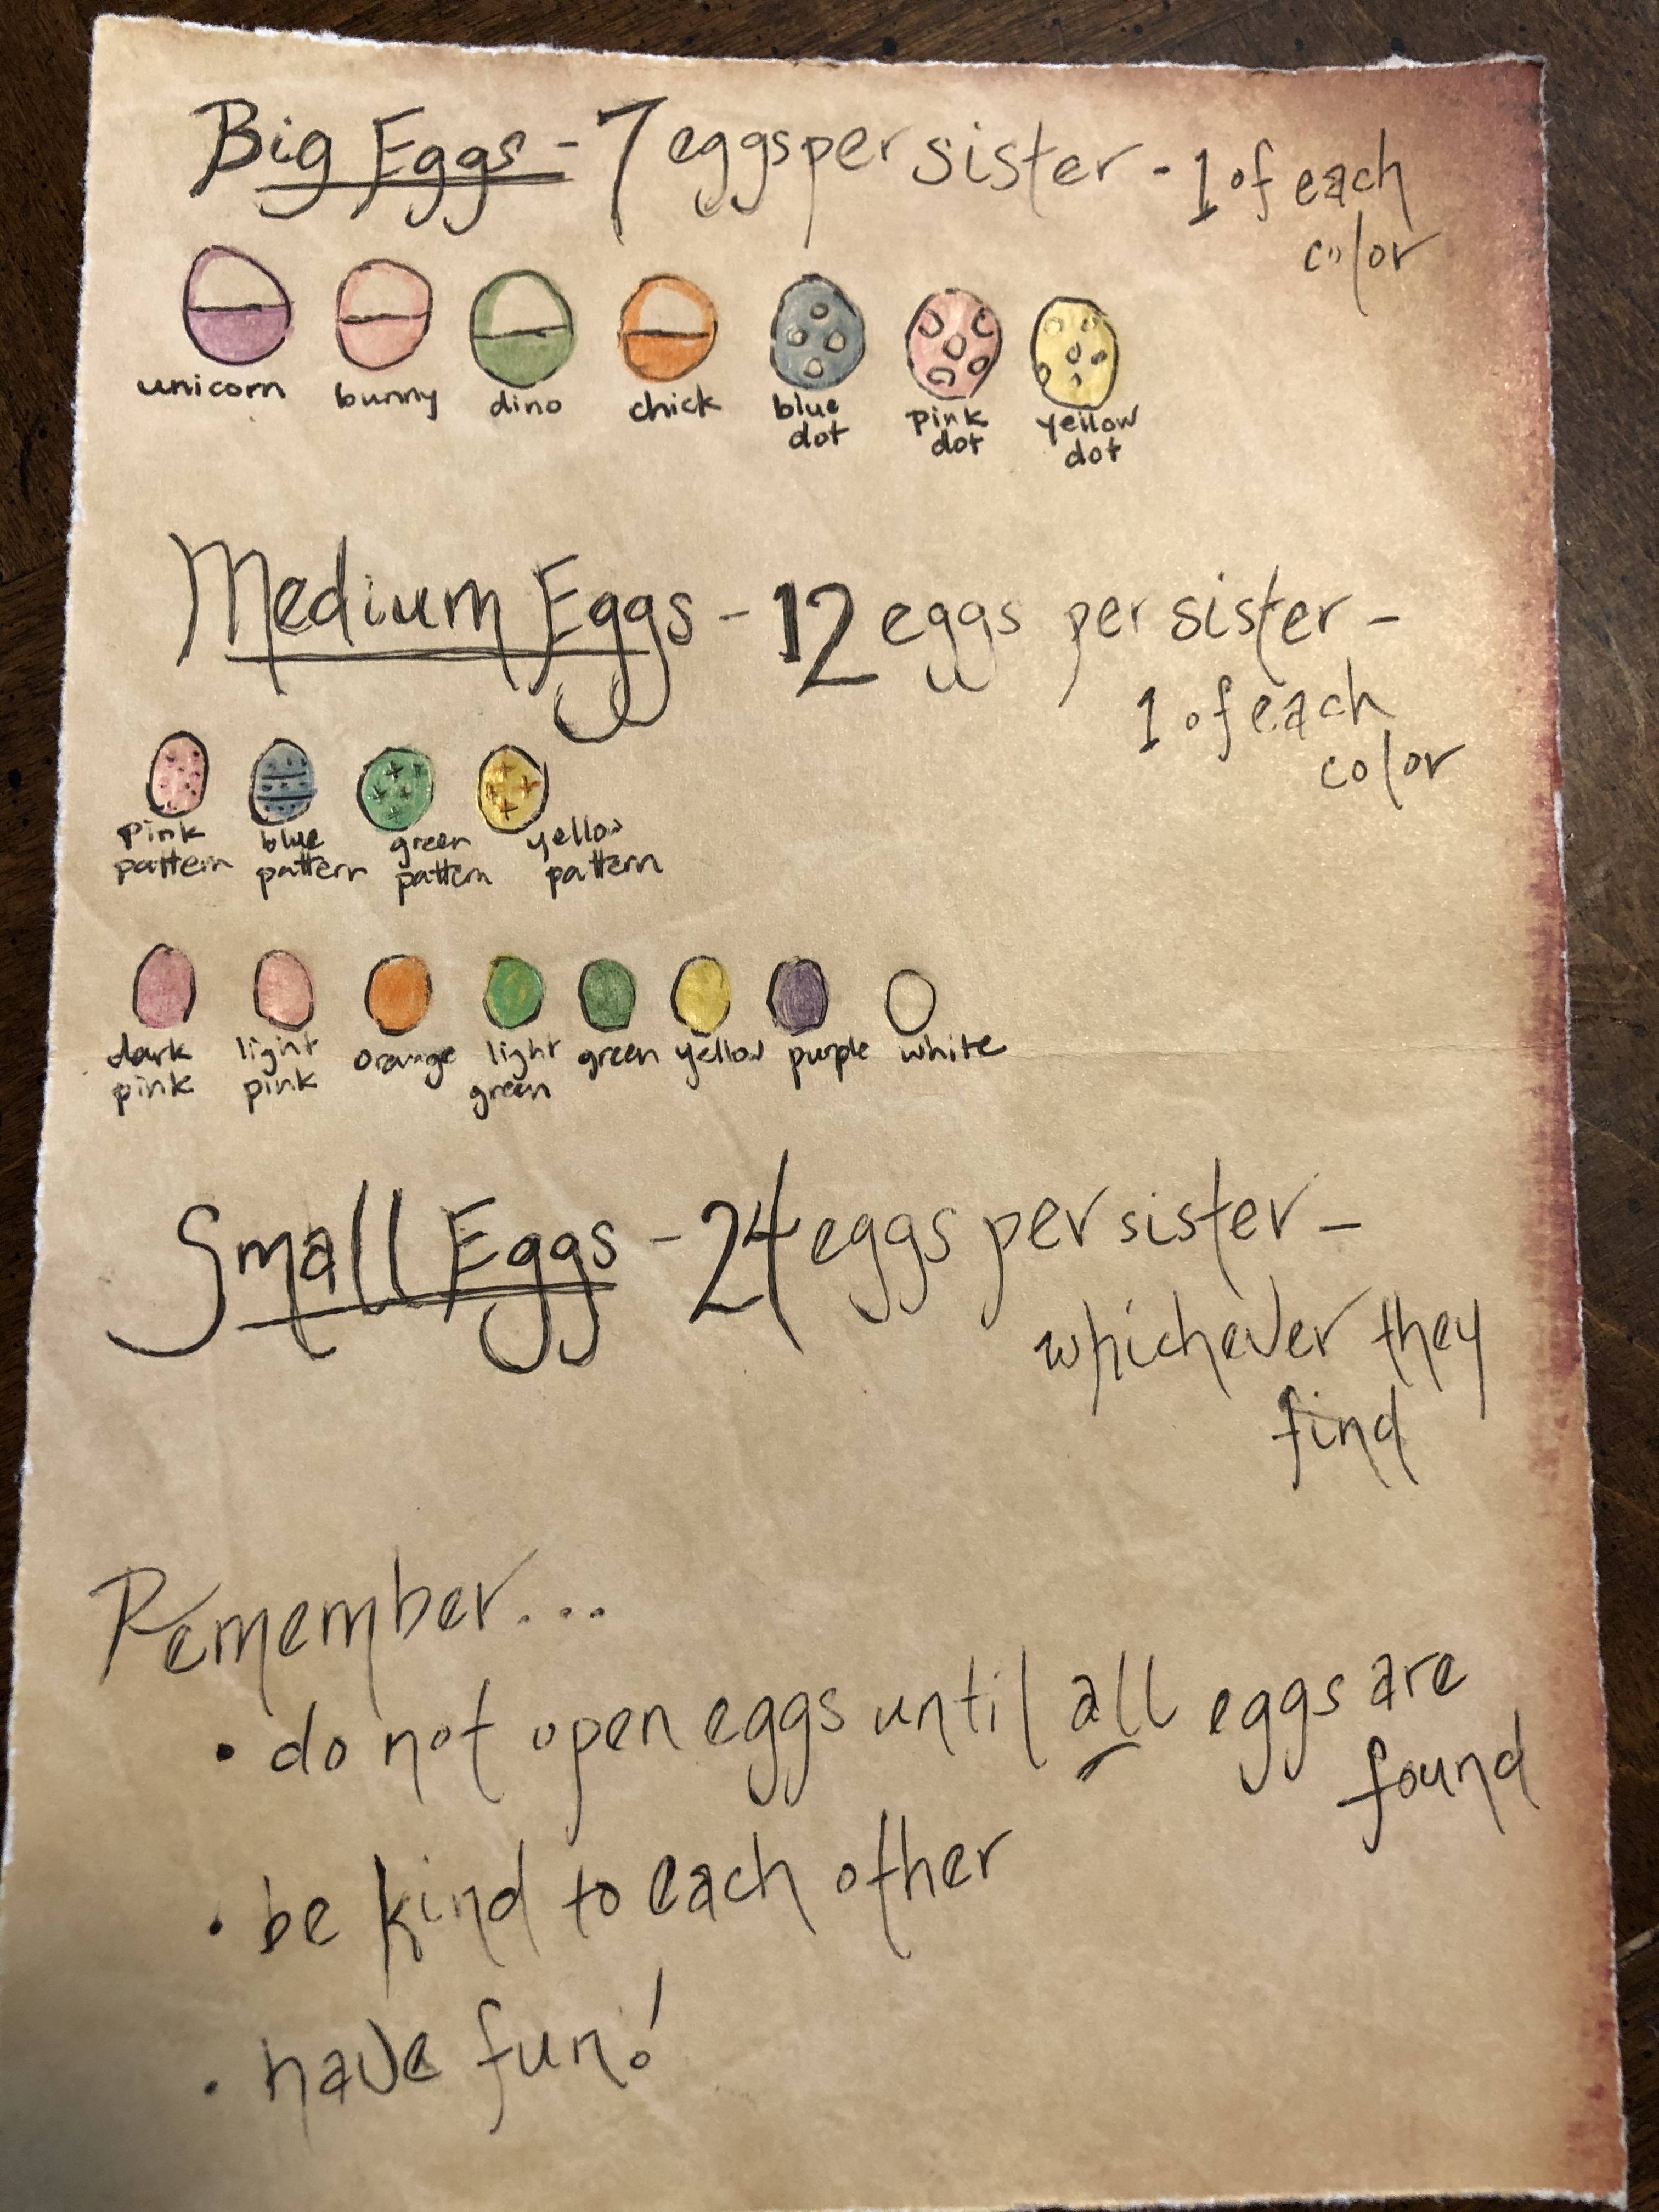 Big Eggs - 7 eggs per sister - 1 of each
color
unicorn bunny dino chick blue dot pink dot yellow dot
Medium Eggs - 12 eggs per sister -
1 of each
color
pink pattern blue pattern green pattern yellow pattern
dark pink light pink orange light green green yellow purple white
Small Eggs - 24 eggs per sister -
whichever they
find
Remember...
• do not open eggs until all eggs are
found
• be kind to each other
• have fun!